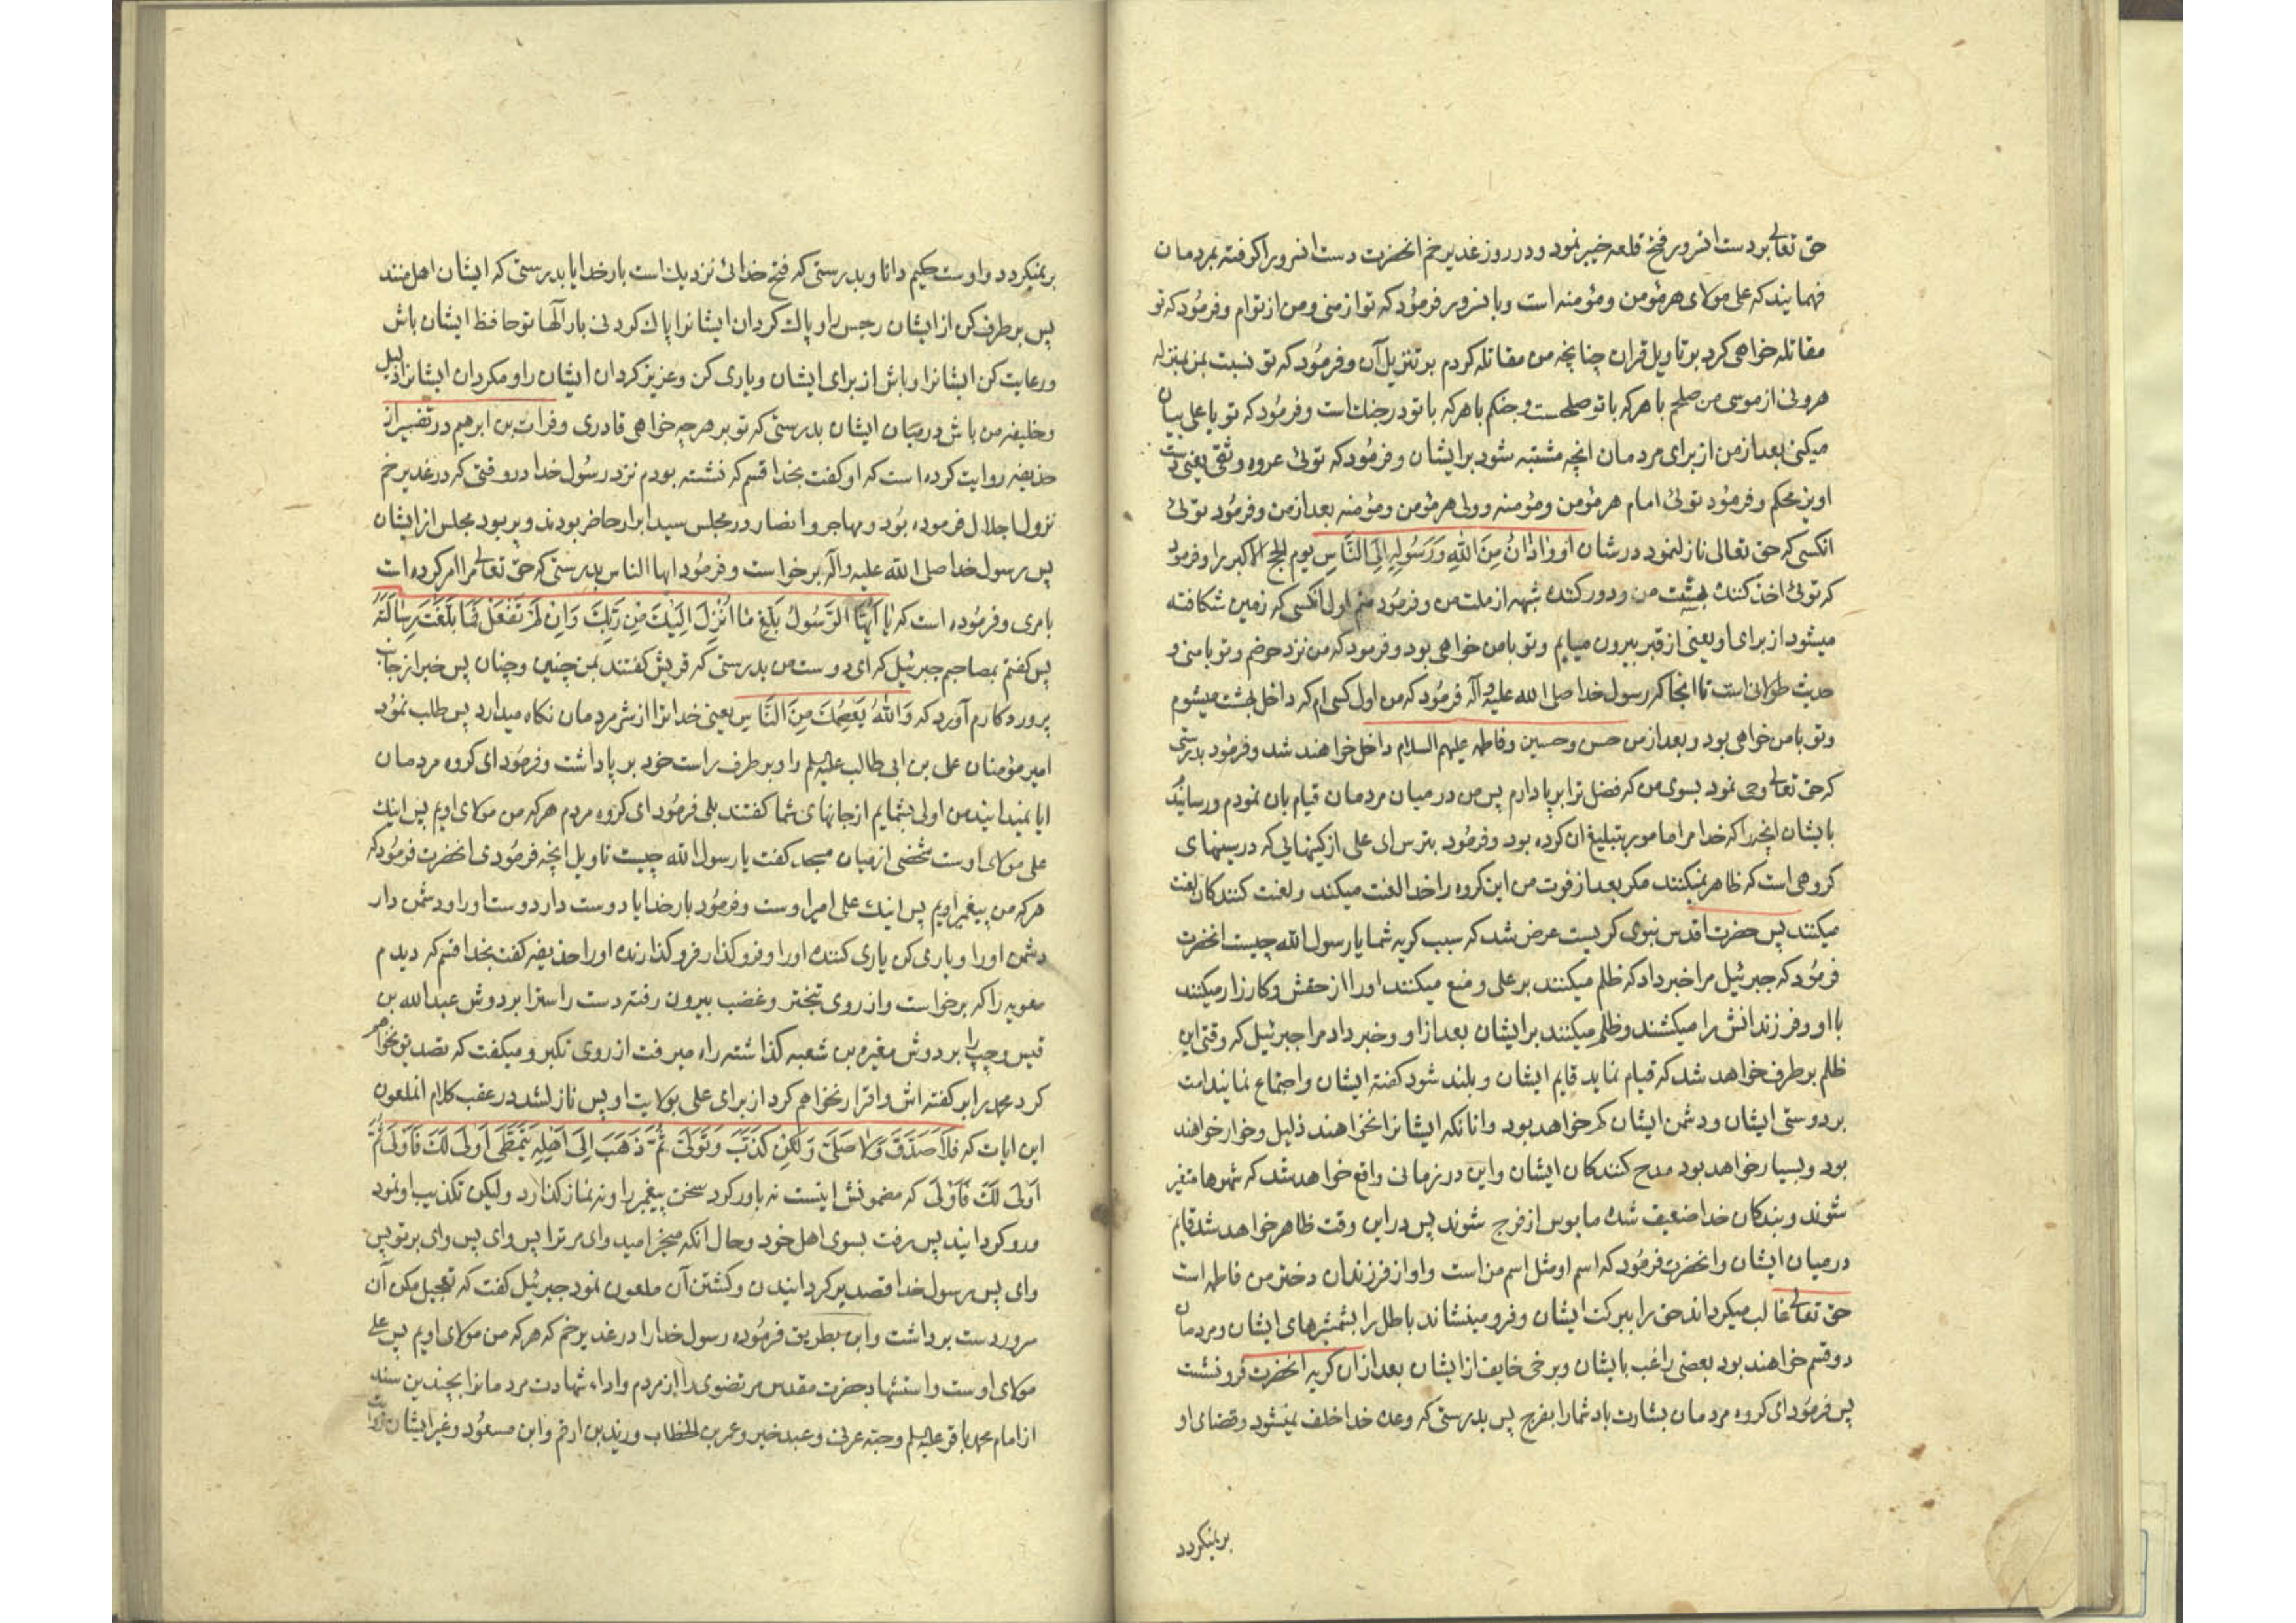 حق تعالی بر دست انسرور فتح قلعه خیبر نمود و در روز غدیر خم انحضرت دست انسرور را کرفته بمردمان
فهمانید که علی مولای هر مؤمن و مؤمنه است و با نسرور فرمود که تو از منی و من از توام و فرمود که تو
مقاتله خواهی کرد بر تاویل قران چنانچه من مقاتله کردم بر تنزیل آن و فرمود که تو نسبت بمن بمنزله
هرونی از موسی من صلحم با هر که با تو صلحست و جنکم با هر که با تو در جنک است و فرمود که تو یا علی بیان
میکنی بعد از من از برای مردمان انچه مشتبه شود بر ایشان و فرمود که توئی عروه وثقی یعنی دست
اویز محکم و فرمود توئی امام هر مؤمن و مؤمنه و ولی هر مؤمن و مؤمنه بعد از من و فرمود توئی
انکسی که حق تعالی نازل نمود در شان او وَاَذَانٌ مِنَ اللّٰهِ وَرَسُولِهِ اِلَی النَّاسِ یوم الحج الاکبر را و فرمود
که توئی اخذ کننده بسنت من و دور کننده شبهه از ملت من و فرمود منم اول انکسی که زمین شکافته
میشود از برای او یعنی از قبر بیرون میایم و تو با من خواهی بود و فرمود که من نزد حوضم و تو با منی و
حدیث طولانی است تا انجا که رسول خدا صلی الله علیه و آله فرمود که من اول کسی ام که داخل بهشت میشوم
و تو با من خواهی بود و بعد از من حسن و حسین و فاطمه علیهم السلام داخل خواهند شد و فرمود بدرستی
که حق تعالی وحی نمود بسوی من که فضل ترا بر پا دارم پس من در میان مردمان قیام بان نمودم و رسانیدم
بایشان انچه را که خدا مرا مامور بتبلیغ ان کرده بود و فرمود بترس ای علی از کینهایی که در سینهای
کروهی است که ظاهر نمیکنند مکر بعد از فوت من این کروه را خدا لعنت میکند و لعنت کنندکان لعنت
میکنند پس حضرت اقدس نبوی کریست عرض شد که سبب کریه شما یا رسول الله چیست انحضرت
فرمود که جبرئیل مرا خبر داد که ظلم میکنند بر علی و منع میکنند او را از حقش و کارزار میکنند
با او و فرزندانش را میکشند و ظلم میکنند بر ایشان بعد از او و خبر داد مرا جبرئیل که وقتی این
ظلم بر طرف خواهد شد که قیام نماید قایم ایشان و بلند شود کفته ایشان و اجتماع نمایند امت
بر دوستی ایشان و دشمن ایشان کم خواهد بود و انانکه ایشانرا نخواهند ذلیل و خوار خواهند
بود و بسیار خواهد بود مدح کنندکان ایشان و این در زمانی واقع خواهد شد که شهرها متغیر
شوند و بندکان خدا ضعیف شده مایوس از فرج شوند پس در این وقت ظاهر خواهد شد قایم
در میان ایشان و انحضرت فرمود که اسم او مثل اسم من است و او از فرزندان دختر من فاطمه است
حق تعالی غالب میکرداند حق را ببرکت ایشان و فرو مینشاند باطل را بشمشیرهای ایشان و مردمان
دو قسم خواهند بود بعضی راغب بایشان و برخی خایف از ایشان بعد از ان کریه انحضرت فرو نشست
پس فرمود ای کروه مردمان بشارت باد شما را بفرج پس بدرستی که وعده خدا خلف نمیشود و قضای او
برنمیکردد
برنمیکردد و اوست حکیم دانا و بدرستی که فتح خدائی نزدیک است بار خدایا بدرستی که ایشان اهل منند
پس بر طرف کن از ایشان رجس را و پاک کردان ایشانرا پاک کردنی بار آلها تو حافظ ایشان باش
و رعایت کن ایشانرا و باش از برای ایشان و یاری کن و عزیز کردان ایشان را و مکردان ایشانرا ذلیل
و خلیفه من باش در میان ایشان بدرستی که تو بر هر چه خواهی قادری و فرات بن ابرهیم در تفسیر از
حذیفه روایت کرده است که او کفت بخدا قسم که نشسته بودم نزد رسول خدا در وقتی که در غدیر خم
نزول اجلال فرموده بود و مهاجر و انصار در مجلس سید ابرار حاضر بودند و پر بود مجلس از ایشان
پس رسول خدا صلی الله علیه و آله برخواست و فرمود ایها الناس بدرستی که حق تعالی مرا امر کرده است
بامری و فرموده است که یَا اَیُّهَا الرَّسُولُ بَلِّغْ مَا اُنْزِلَ اِلَیْكَ مِنْ رَبِّكَ وَاِنْ لَمْ تَفْعَلْ فَمَا بَلَّغْتَ رِسَالَتَهُ
پس کفتم بمصاحبم جبرئیل که ای دوست من بدرستی که قریش کفتند بمن چنین و چنان پس خبر از جانب
پروردکارم آورد که وَاللّٰهُ یَعْصِمُكَ مِنَ النَّاسِ یعنی خدا ترا از شر مردمان نکاه میدارد پس طلب نمود
امیر مؤمنان علی بن ابی طالب علیه السلم را و بر طرف راست خود بر پا داشت و فرمود ای کروه مردمان
ایا نمیدانید من اولی بشمایم از جانهای شما کفتند بلی فرمود ای کروه مردم هر که من مولای اویم پس اینک
علی مولای اوست شخصی از میان مسجد کفت یا رسول الله چیست تاویل انچه فرمودی انحضرت فرمود که
هر که من پیغمبر اویم پس اینک علی امیر اوست و فرمود بار خدایا دوست دار دوست او را و دشمن دار
دشمن او را و یاری کن یاری کننده او را و فرو کذار فرو کذارنده او را حذیفه کفت بخدا قسم که دیدم
معویه را که برخواست و از روی تبختر و غضب بیرون رفته دست راست را بر دوش عبدالله بن
قیس و چپ را بر دوش مغیره بن شعبه کذاشته راه میرفت از روی تکبر و میکفت که تصدیق نخواهم
کرد محمد را بر کفته اش و اقرار نخواهم کرد از برای علی بولایت او پس نازل شد در عقب کلام انملعون
این ایات که فَلَا صَدَّقَ وَلَا صَلَّی وَلٰکِنْ کَذَّبَ وَتَوَلَّی ثُمَّ ذَهَبَ اِلَی اَهْلِهِ یَتَمَطَّی اَوْلَی لَكَ فَاَوْلَی ثُمَّ
اَوْلَی لَكَ فَاَوْلَی که مضمونش اینست نه باور کرد سخن پیغمبر را و نه نماز کذارد ولیکن تکذیب او نمود
و رو کردانید پس رفت بسوی اهل خود و حال انکه میخرامید وای مر ترا پس وای پس وای بر تو پس
وای پس رسول خدا قصد بر کردانیدن و کشتن آن ملعون نمود جبرئیل کفت که تعجیل مکن آن
سرور دست برداشت و ابن بطریق فرموده رسول خدا را در غدیر خم که هر که من مولای اویم پس علی
مولای اوست و استشهاد حضرت مقدس مرتضوی را از مردم و اداء شهادت مردمانرا بچندین سند
از امام محمد باقر علیه السلم و حبّه عرنی و عبد خیر و عمر بن الخطاب و زید بن ارقم و ابن مسعود و غیر ایشان